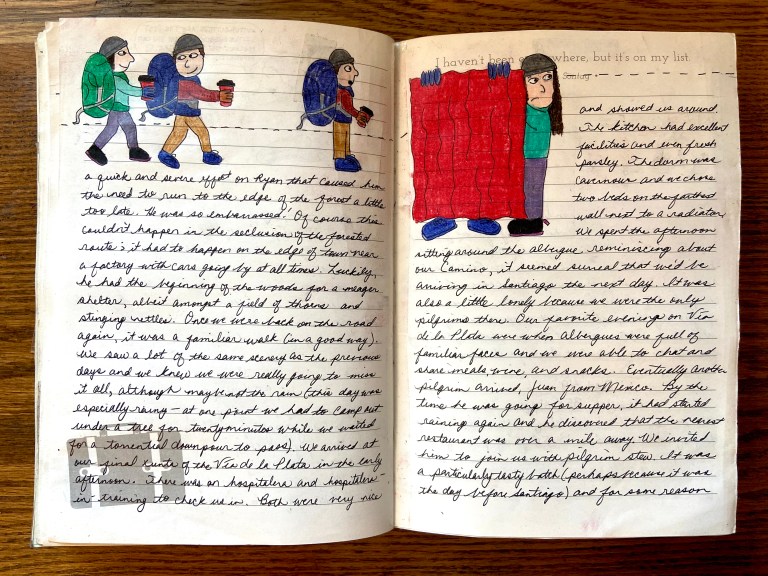 a quick and severe effect on Ryan that caused him
the need to run to the edge of the forest a little
too late. He was so embarrassed. Of course this
couldn't happen in the seclusion of the forested
route; it had to happen on the edge of town near
a factory with cars going by at all times. Luckily,
he had the beginning of the woods for a meager
shelter, albeit amongst a field of thorns and
stinging nettles. Once we were back on the road
again, it was a familiar walk (in a good way).
We saw a lot of the same scenery as the previous
days and we knew we were really going to miss
it all, although maybe not the rain (this day was
especially rainy - at one point we had to camp out
under a tree for twenty minutes while we waited
for a torrential downpour to pass). We arrived at
our final Xunta of the Via de la Plata in the early
afternoon. There was an hospitalera and hospitalera-
in-training to check us in. Both were very nice
I haven't been everywhere, but it's on my list
Sontag
and showed us around.
The kitchen had excellent
facilities and even fresh
parsley. The dorm was
cavernous and we chose
two beds on the farthest
wall next to a radiator.
We spent the afternoon
sitting around the albergue reminiscing about
our Camino, it seemed surreal that we'd be
arriving in Santiago the next day. It was
also a little lonely because we were the only
pilgrims there. Our favorite evenings on Via
de la Plata were when albergues were full of
familiar faces and we were able to chat and
share meals, wine, and snacks. Eventually another
pilgrim arrived, Juan from Mexico. By the
time he was going for supper, it had started
raining again and he discovered that the nearest
restaurant was over a mile away. We invited
him to join us with pilgrim stew. It was
a particularly tasty batch (perhaps because it was
the day before Santiago) and for some reason